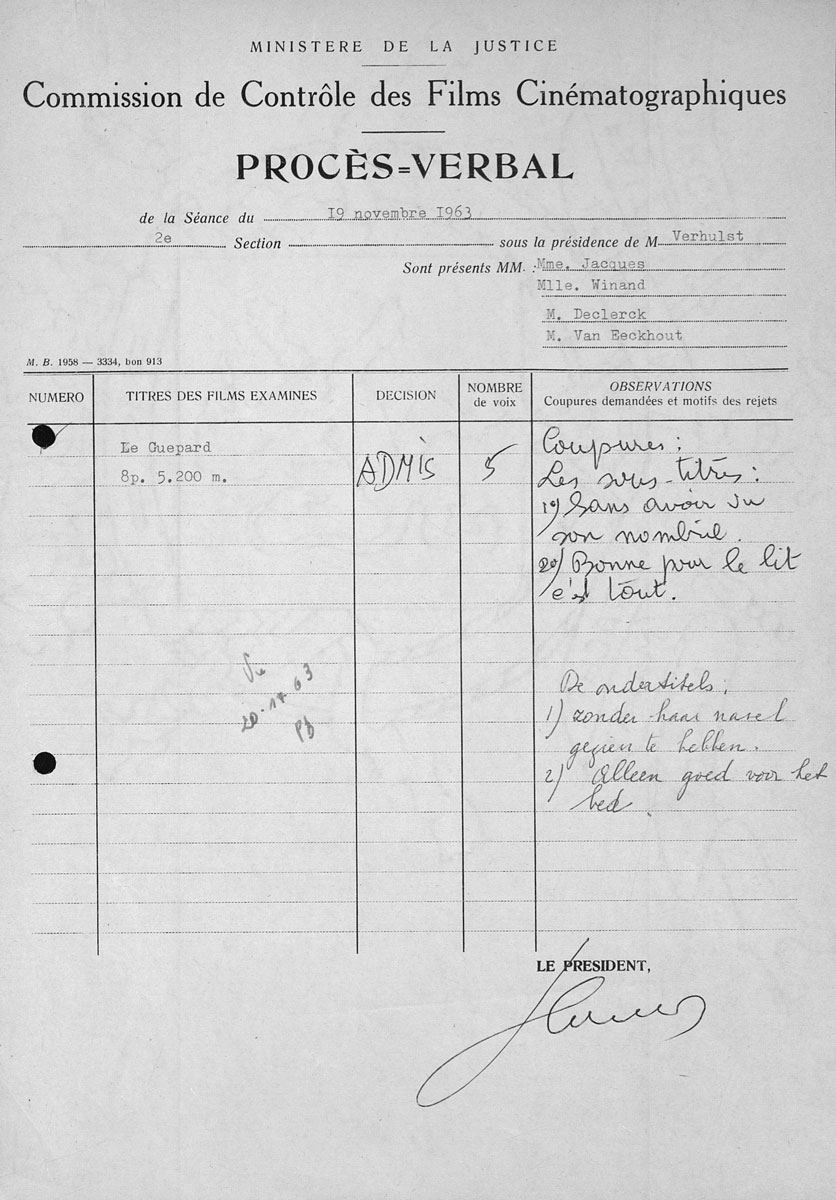 MINISTERE DE LA JUSTICE
Commission de Contrôle des Films Cinématographiques
PROCÈS=VERBAL
de la Séance du 19 novembre 1963
2e Section sous la présidence de M Verhulst
Sont présents MM. : Mme. Jacques
Mlle. Winand
M. Declerck
M. Van Eeckhout
M. B. 1958 — 3334, bon 913
NUMERO TITRES DES FILMS EXAMINES DECISION NOMBRE de voix OBSERVATIONS Coupures demandées et motifs des rejets
Le Guepard ADMIS 5 Coupures :
8p. 5.200 m. Les sous-titres :
1º) Sans avoir vu
son nombril.
2º) Bonne pour le lit
c'est tout.
Vu
De ondertitels :
1) zonder haar navel
gezien te hebben.
2) Alleen goed voor het
bed.
LE PRESIDENT,